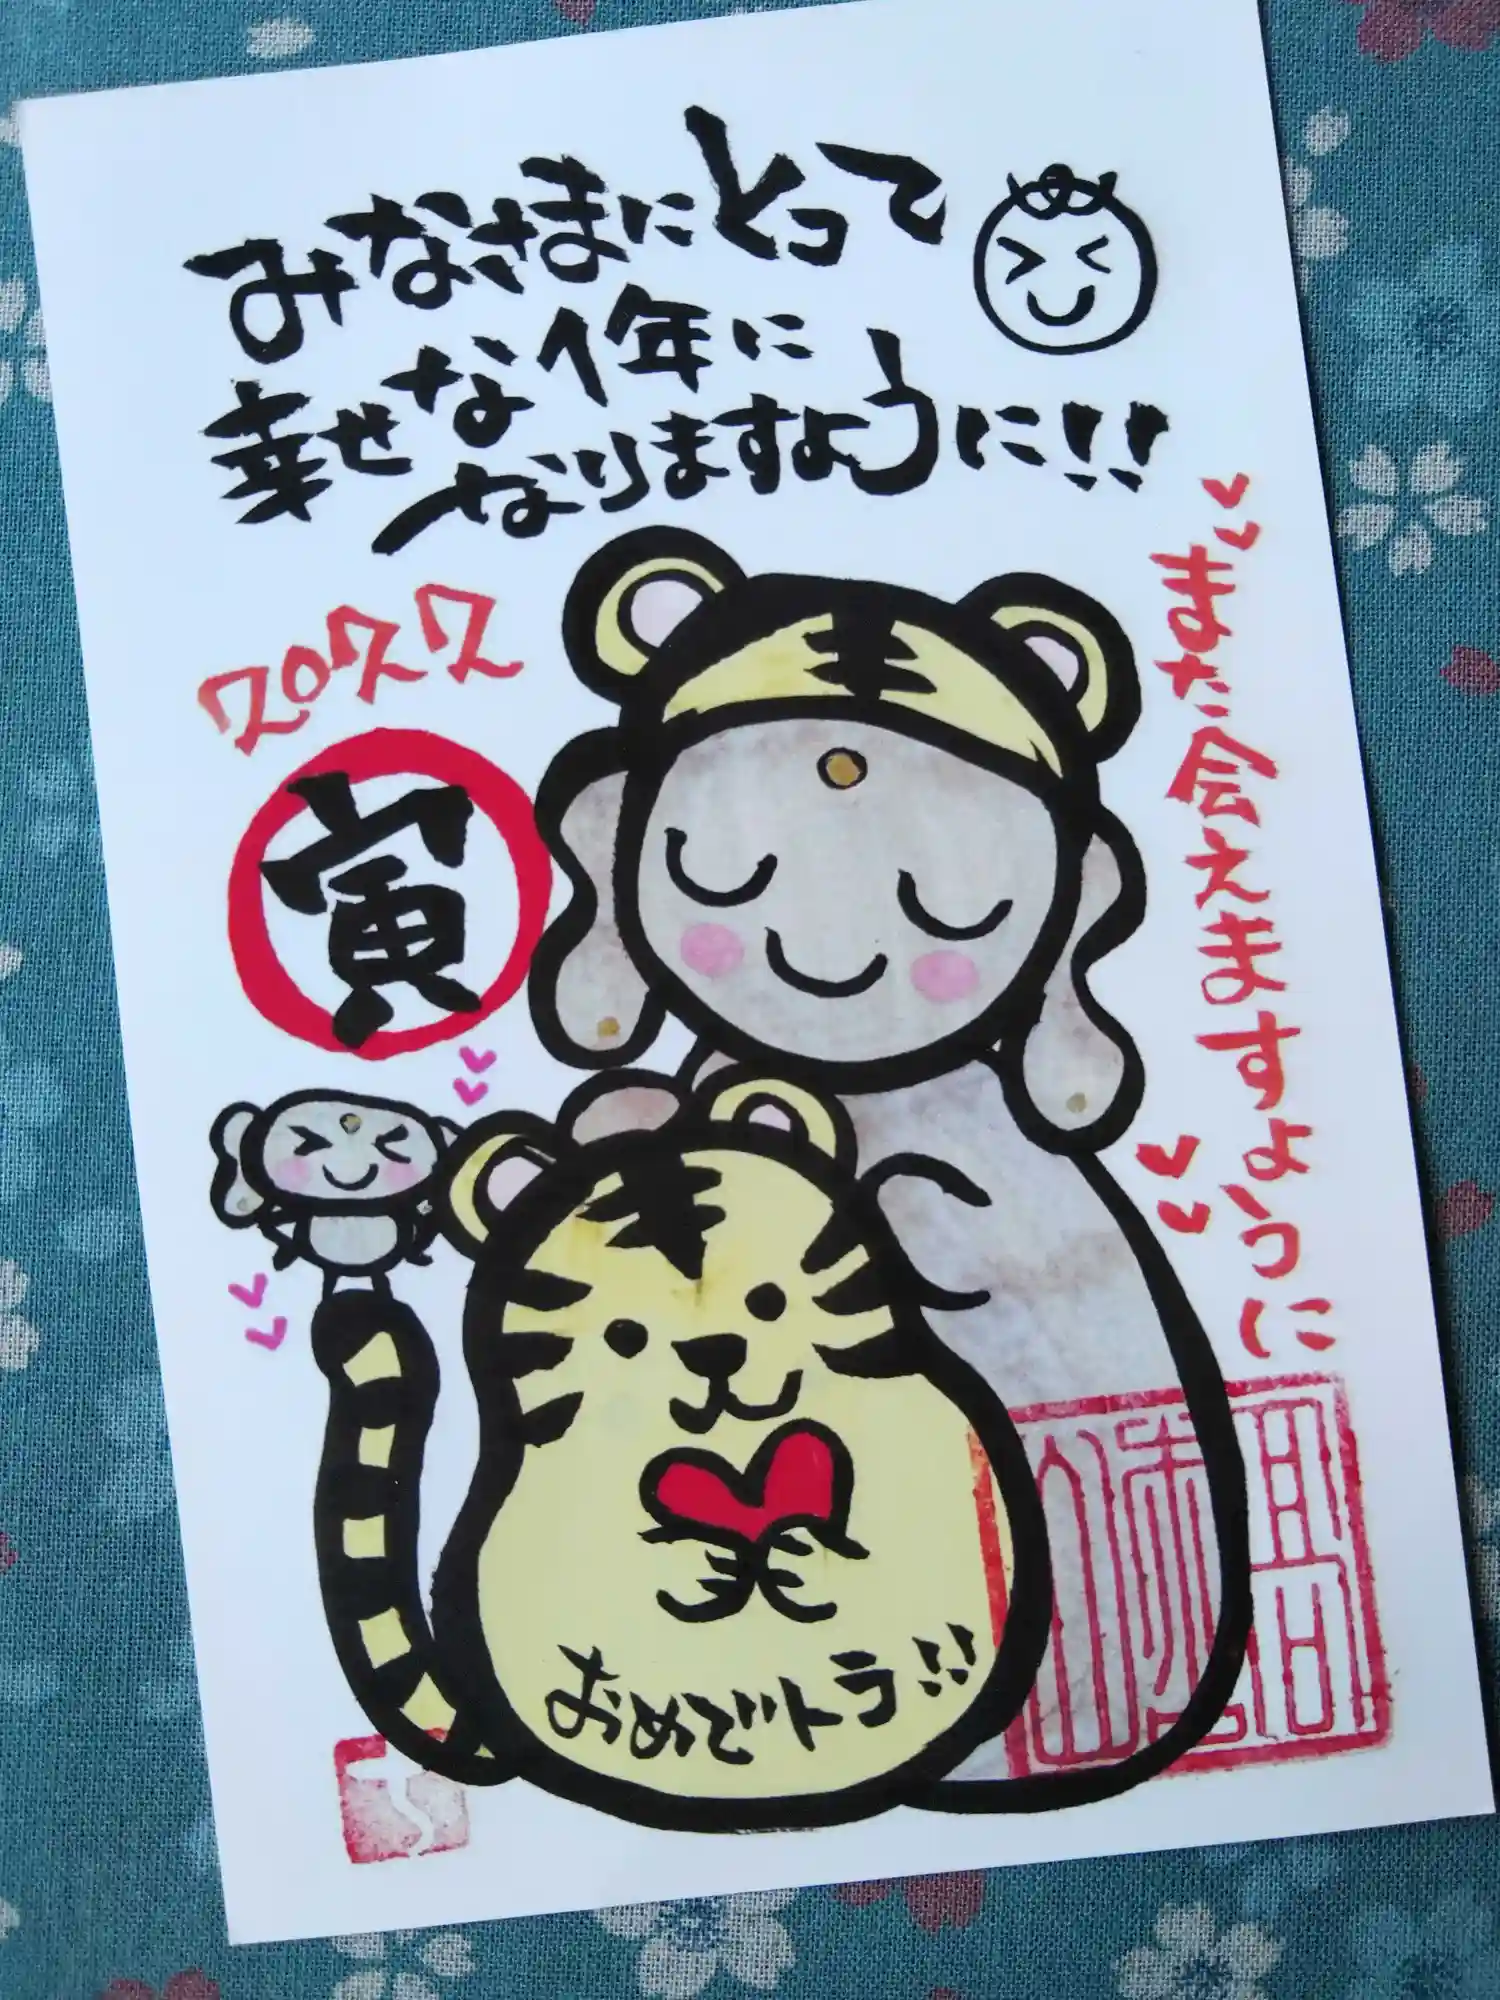 みなさまにとって
幸せな1年に
なりますように!!
2022
寅
また会えますように
笑
おめでトラ!!